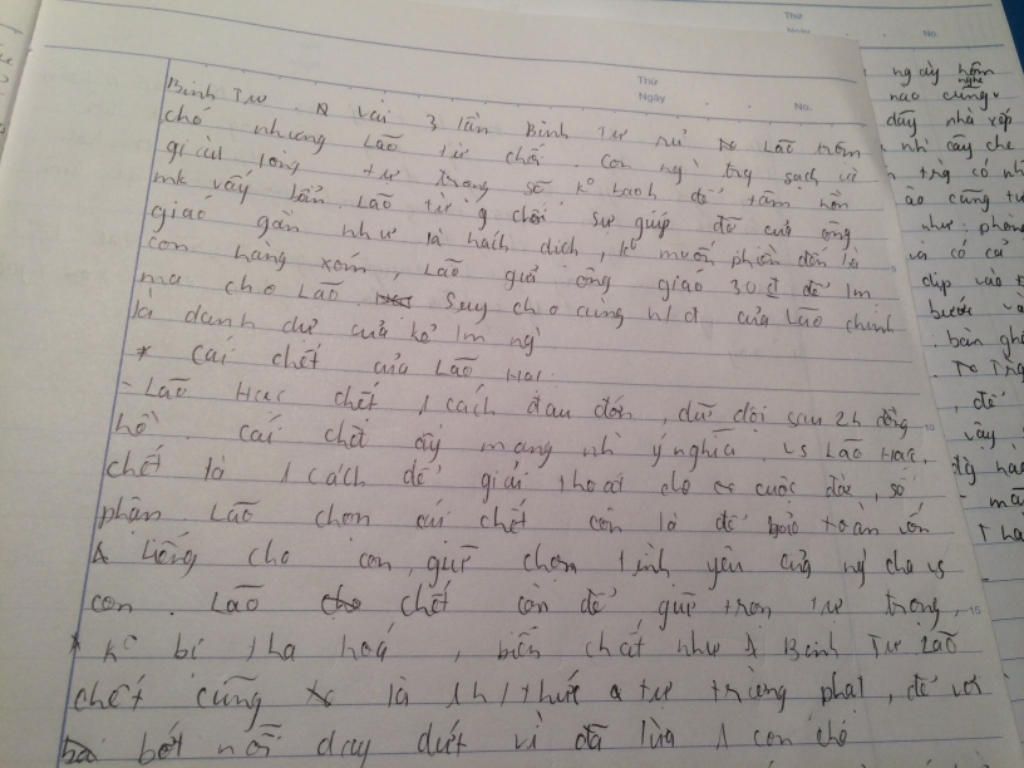 Thứ
Ngày
No.
Thứ
Ngày
No.
Binh Tư. Q vài 3 lần Binh Tư rủ Lão trộm
chó nhưng Lão từ chối. Con ng` trg sạch vì
giàu lòng tự trọng số k° hoạh để tâm hồn
mk vấy bẩn. Lão từ chối sự giúp đỡ của ông
giáo gần như là hách dịch, k° muốn phiền đến là
con hàng xóm, Lão gửi ông giáo 30đ để lm
ma cho Lão. Suy cho cùng của Lão chính
là danh dự của kẻ lm ng`
* Cái chết của Lão Hạc
- Lão Hạc chết 1 cách đau đớn, dữ dội sau 2h đồng
hồ. Cái chết ấy mang nh` ý nghĩa. vs Lão Hạc,
chết là 1 cách để giải thoát cho cuộc đời, số
phận. Lão chọn cái chết còn là để bảo toàn vốn
liếng cho con, giữ chọn tình yêu của ng` cha vs
con. Lão chết còn để giữ tron tự trọng,
k° bị tha hoá, biến chất như Binh Tư Lão
chết cũng là 1 h/thức tự trừng phạt, để vơi
bớt nỗi day dứt vì đã lừa 1 con chó
ngày hôm
nghe
nào cũng
dãy nhà xếp
nh` cây che
trg có nh
ảo cũng tư
như: phòn
và có cả
dịp vào
bước và
bàn gh
, để
vậy
10
15